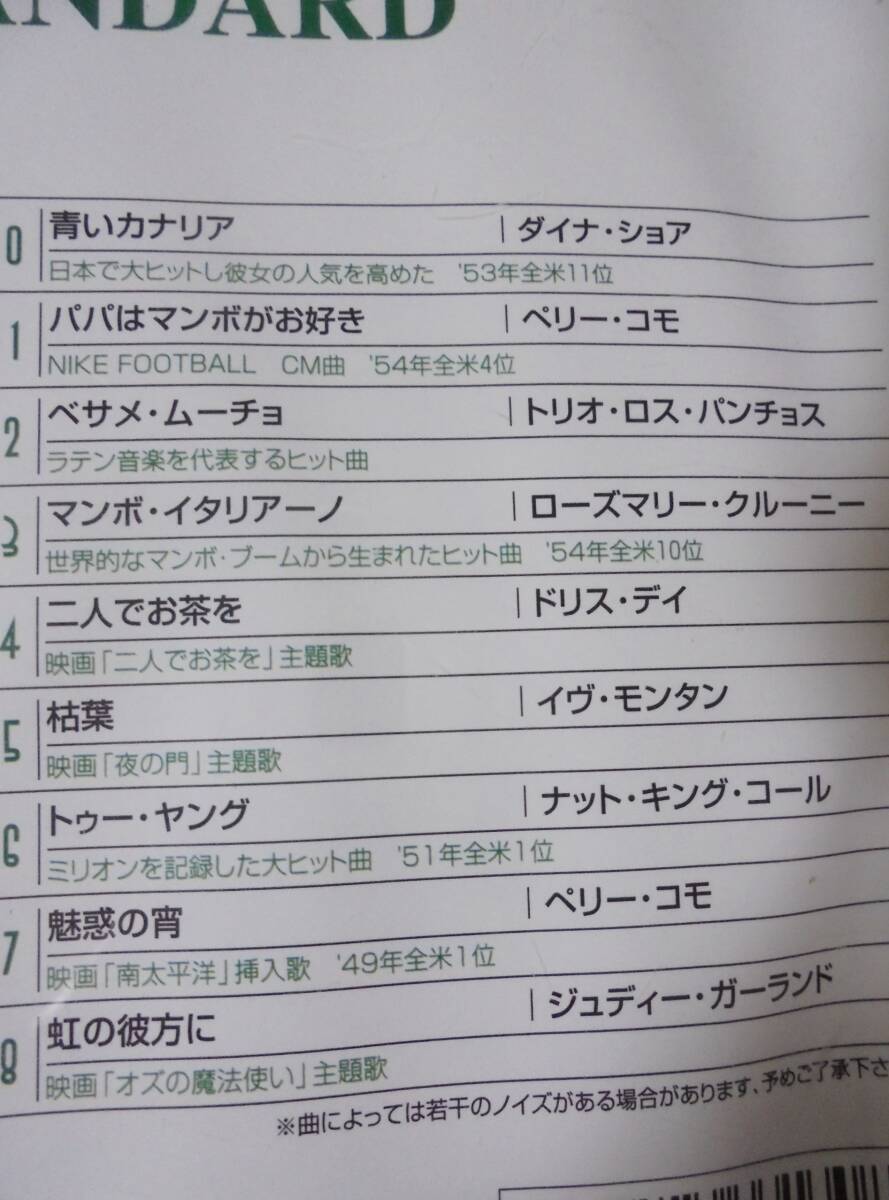 ANDARD
0 青いカナリア | ダイナ・ショア
日本で大ヒットし彼女の人気を高めた '53年全米11位
1 パパはマンボがお好き | ペリー・コモ
NIKE FOOTBALL CM曲 '54年全米4位
2 ベサメ・ムーチョ | トリオ・ロス・パンチョス
ラテン音楽を代表するヒット曲
3 マンボ・イタリアーノ | ローズマリー・クルーニー
世界的なマンボ・ブームから生まれたヒット曲 '54年全米10位
4 二人でお茶を | ドリス・デイ
映画「二人でお茶を」主題歌
5 枯葉 | イヴ・モンタン
映画「夜の門」主題歌
6 トゥー・ヤング | ナット・キング・コール
ミリオンを記録した大ヒット曲 '51年全米1位
7 魅惑の宵 | ペリー・コモ
映画「南太平洋」挿入歌 '49年全米1位
8 虹の彼方に | ジュディー・ガーランド
映画「オズの魔法使い」主題歌
※曲によっては若干のノイズがある場合があります、予めご了承下さ